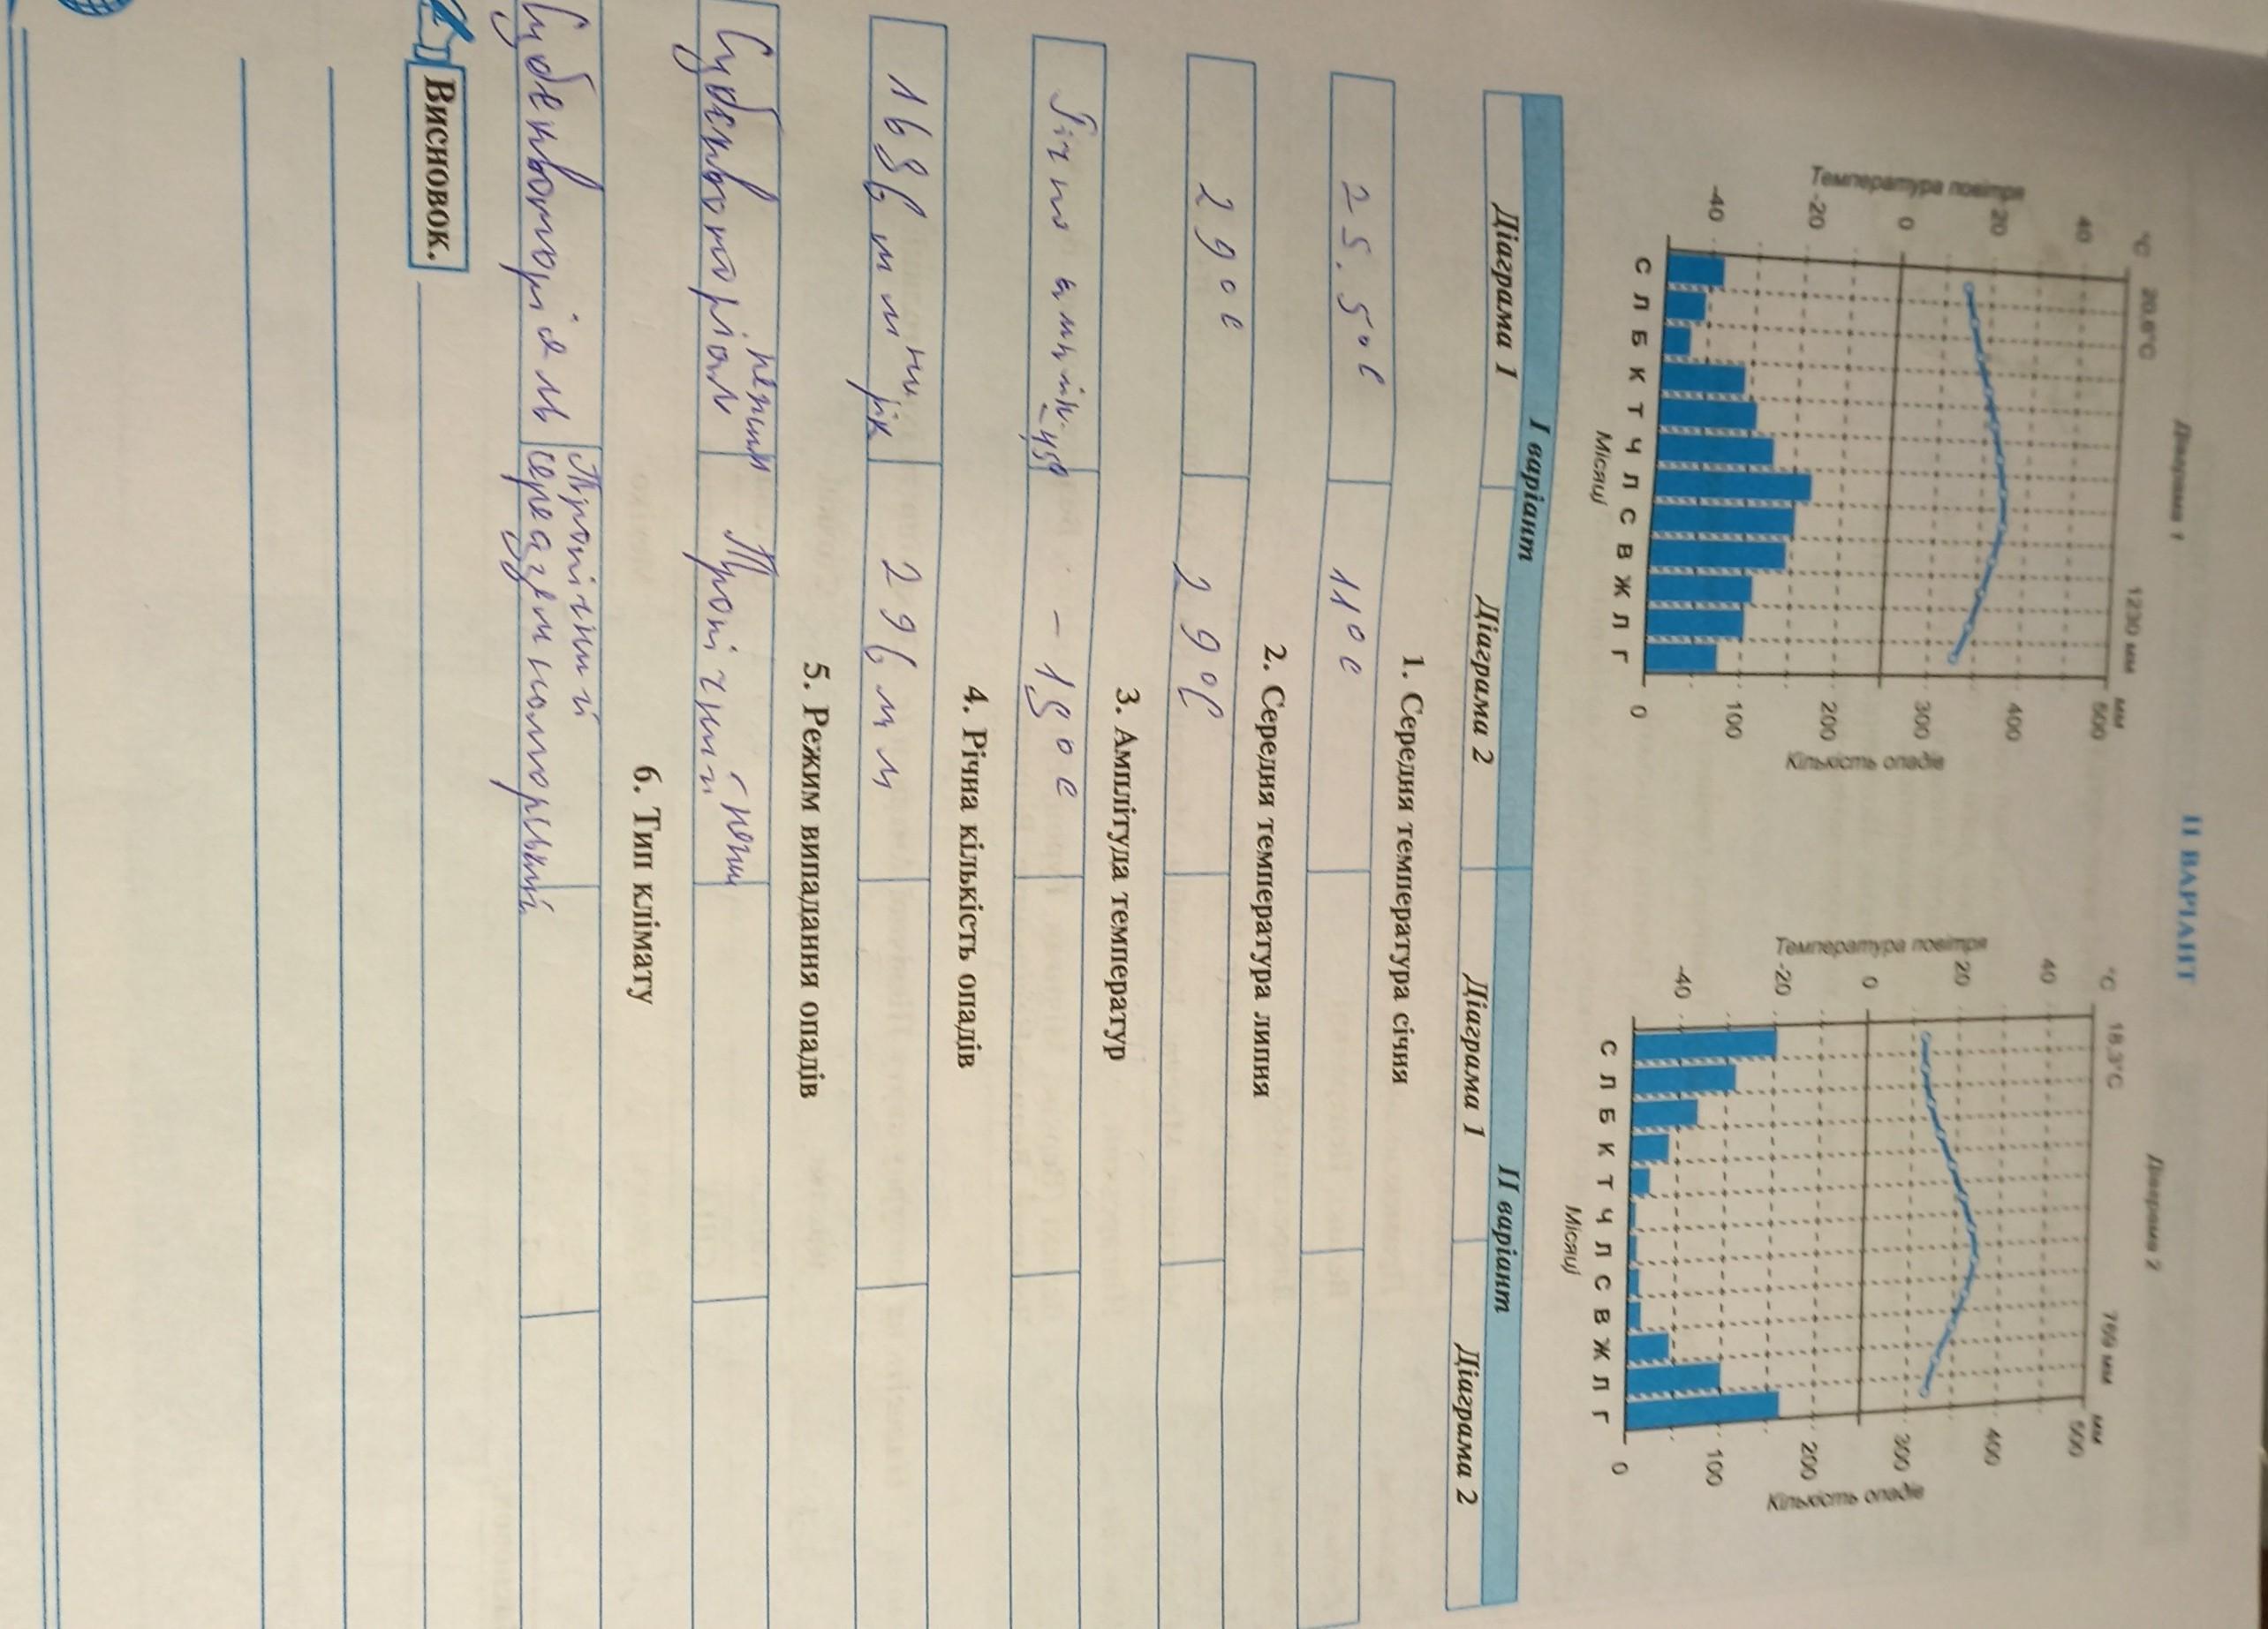 II ВАРІАНТ
Діаграма 1
°C 20,6°C 1230 мм мм
40
20
0
-20
-40
Температура повітря
500
400
300
200
100
0
Кількість опадів
С Л Б К Т Ч Л С В Ж Л Г
Місяці
Діаграма 2
°C 18,3°C 769 мм мм
40
20
0
-20
-40
Температура повітря
500
400
300
200
100
0
Кількість опадів
С Л Б К Т Ч Л С В Ж Л Г
Місяці
I варіант II варіант
Діаграма 1 Діаграма 2 Діаграма 1 Діаграма 2
1. Середня температура січня
25.5°С 11°С
2. Середня температура липня
29°С 29°С
3. Амплітуда температур
- 18°С
4. Річна кількість опадів
мм на рік 296 мм
5. Режим випадання опадів
Субекваторіал Тропічний
6. Тип клімату
Тропічний
Висновок.